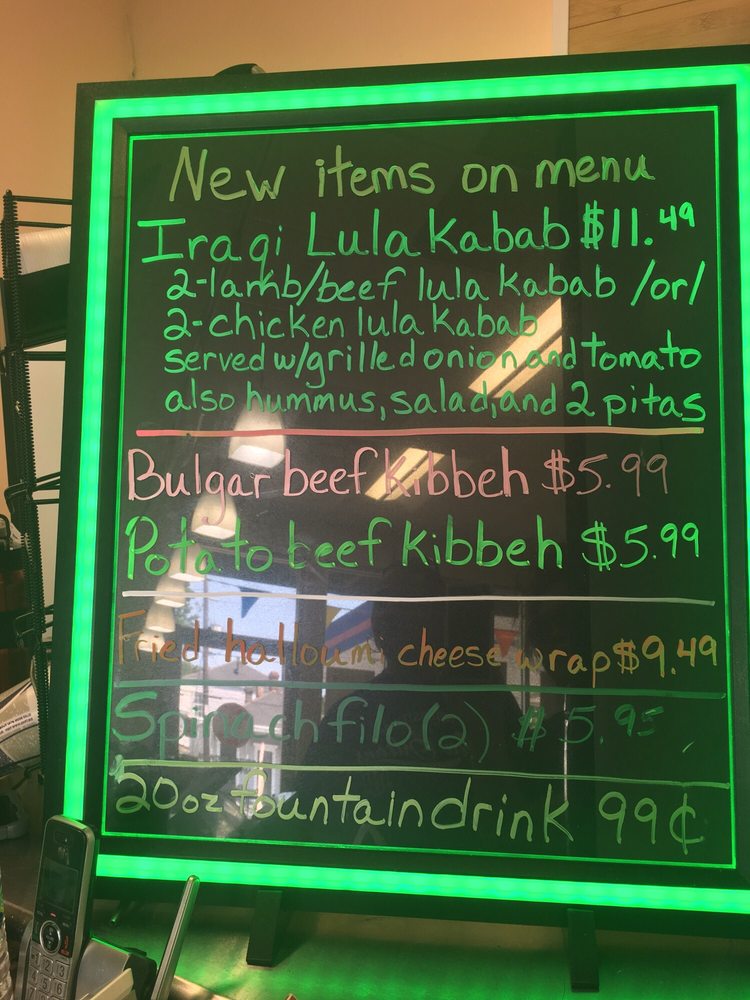 New items on menu
Iraqi Lula Kabab $11.49
2-lamb/beef lula kabab /or/
2-chicken lula kabab
served w/grilled onion and tomato
also hummus, salad, and 2 pitas
Bulgar beef kibbeh $5.99
Potato beef kibbeh $5.99
Fried halloumi cheese wrap $9.49
Spinach filo (2) $5.95
20oz fountain drink 99¢